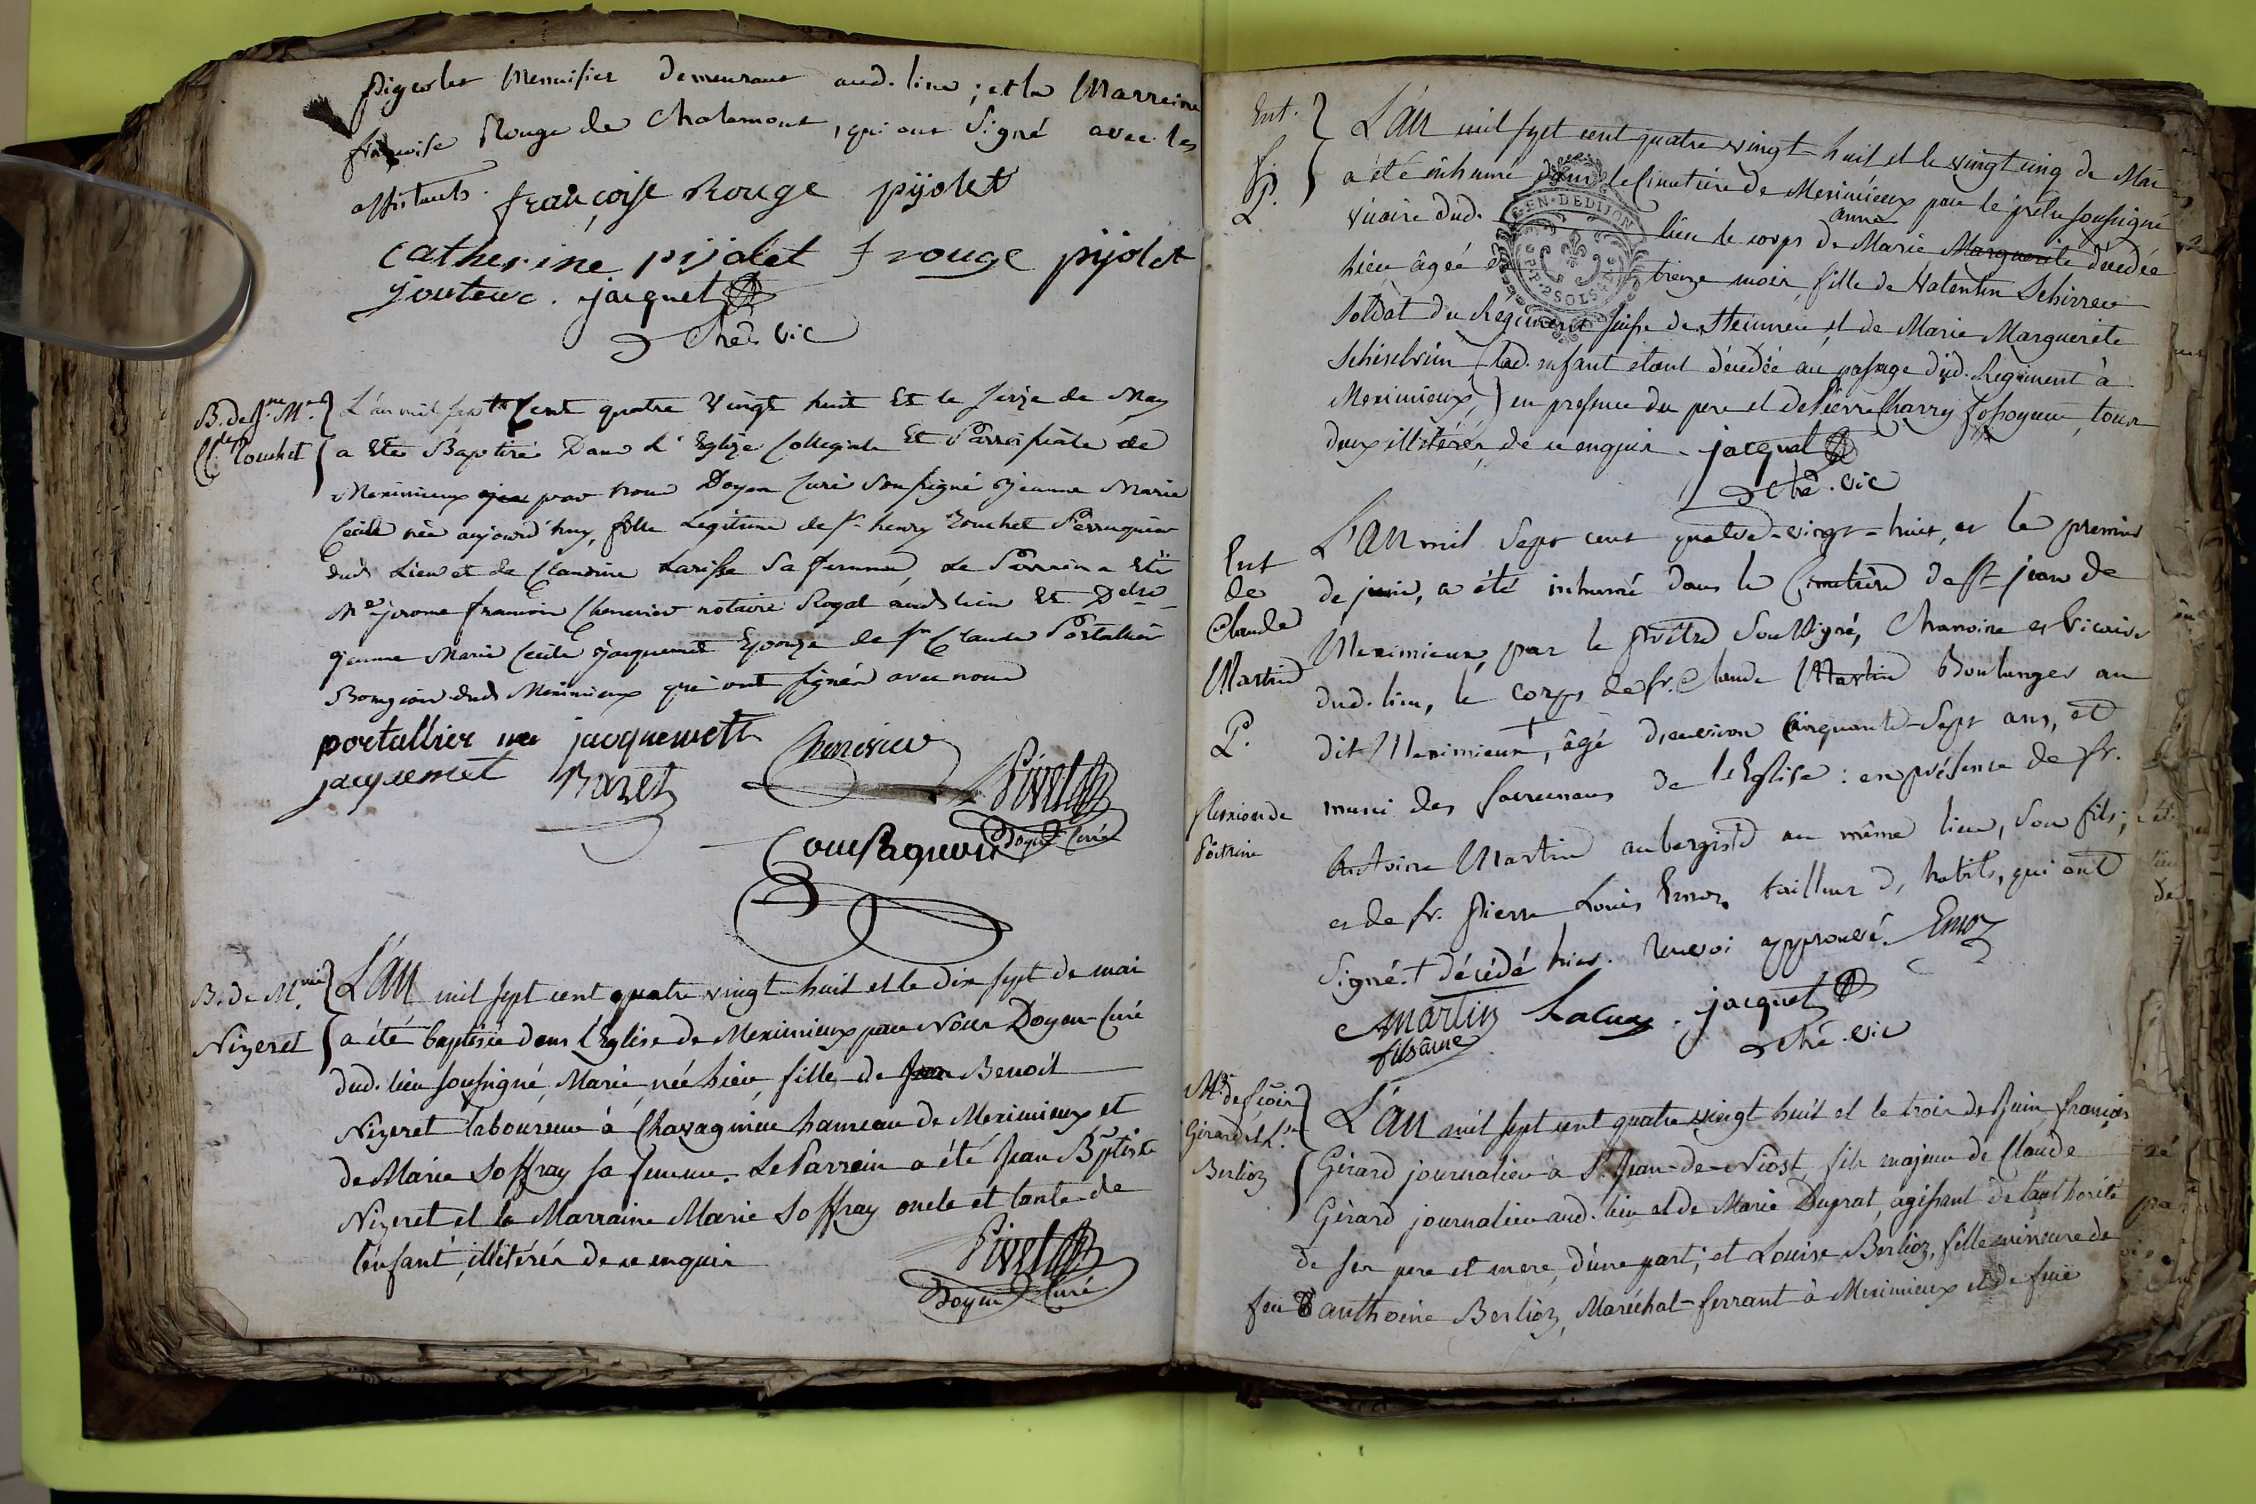 Pigeolet Menuisier demeurant aud. lieu ; et la Marreine
françoise Rouge de Chalamont, qui ont Signé avec les
assistants.
françoise Rouge pijolet
catherine pijolet f rouge pijolet
jacquet
che. vic
B. de Jne. Me.
Cle. Touchet
L'an mil sept Cent quatre Vingt huit Et le seize de May
a Eté Baptisé Dans L'Eglize Collegiale Et Parroissiale de
Meximieux par nous Doyen Curé Soussigné jeanne Marie
Cecile née aujourd'huy, fille Legitime de Sr. henry Touchet Perruquier
dud. Lieu et de Claudine Larisse Sa femme, Le Parrain a Eté
Me. jerome francois Chenevier notaire Royal aud. lieu Et Delle.
jeanne Marie Cecile jacquemet Epouze de Sr. Claude Portallier
Bourgeois dud. Meximieux qui ont signés avec nous
portallier nee jacquemett
Chenevier
jacquemet Bozet
Pivet
Doyen Curé
Compagnon
B. de Mrie.
Nizeret
L'an mil sept cent quatre vingt-huit et le dix sept de mai
a été baptisée dans l'Eglise de Meximieux par Nous Doyen-Curé
dud. lieu soussigné, Marie, née hier, fille de Jean Benoit
Nizeret laboureur à Chavagnieu hameau de Meximieux et
de Marie Soffray sa femme. Le Parrein a été Jean Bptiste
Nizeret et la Marraine Marie Soffray oncle et tante de
l'enfant, illitérés de ce enquis
Pivet
Doyen Curé
Ent.
P.
L'an mil sept cent quatre vingt-huit et le vingt cinq de Mai
a été inhumé dans le Cimetière de Meximieux par le prêtre soussigné
GEN. DE DIJON
2 SOLS
anne
vicaire dud. lieu le corps de Marie Marguerite décedée
hier âgée de treize mois, fille de Valentin Schirrer
soldat du Régiment suisse de Steinner, et de Marie Marguerite
(lad. enfant étant décédée au passage dud. Régiment à
Meximieux,) en presence du pere et de Pierre Charry fossoyeur, tous
deux illitérés de ce enquis. jacquet
che. vic
Ent
de
Claude
Martin
P.
fluxion de
Poitrine
L'an mil Sept cent quatre-vingt-huit, et le premier
de juin, a été inhumé dans le Cimetière de St jean de
Meximieux, par le prêtre Soussigné, Chanoine et Vicaire
dud. lieu, le corps de Sr. Claude Martin Boulanger au
dit Meximieux†, âgé d'environ Cinquante-Sept ans, et
muni des Sacremens de l'Eglise : en présence de Sr.
Antoine Martin aubergiste au même lieu, Son fils;
et de Sr. Pierre Louis Emoz tailleur d'habits, qui ont
Signé. † décédé hier. renvoi approuvé. Emoz
Martin
fils ainé
jacquet
che. vic
Mge. de fçois
Gérard et Lse.
Berlioz
L'an mil sept cent quatre vingt huit et le trois de Juin françois
Gérard journalier à St. Jean-de-Niost fils majeur de Claude
Gérard journalier aud. lieu et de Marie Duprat, agissant de l'authorité
de ses pere et mere, d'une part; et Louise Berlioz, fille mineure de
feu anthoine Berlioz, Maréchal-ferrant à Meximieux et de feue